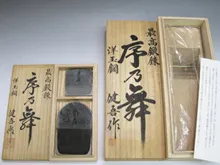 最高鍛錬
序乃舞
洋玉鋼
健吾作
最高鍛錬
序乃舞
洋玉鋼
健吾作